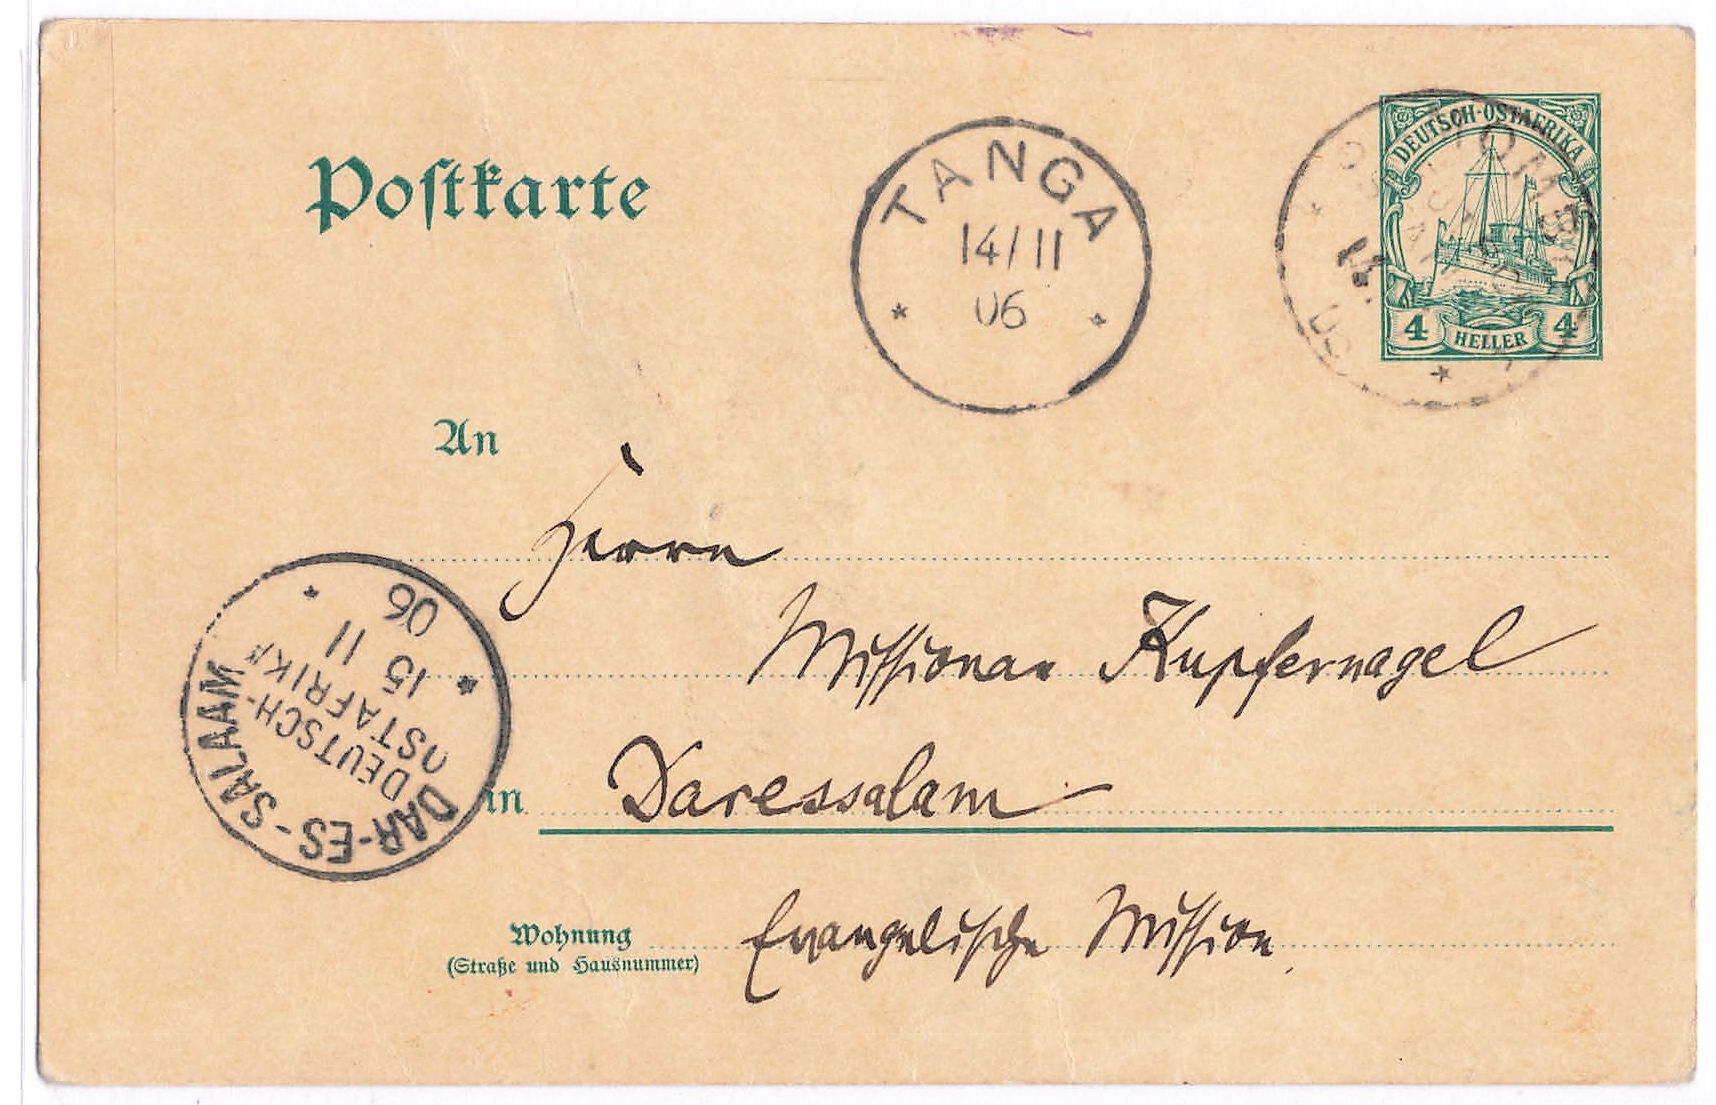 Postkarte
TANGA
14/11
06
DEUTSCH-OSTAFRIKA
4 HELLER 4
An
Herrn
Missionar Kupfernagel
in Daressalam
DAR-ES-SALAAM
DEUTSCH-
OSTAFRIKA
15 11
06
Wohnung Evangelische Mission.
(Straße und Hausnummer)